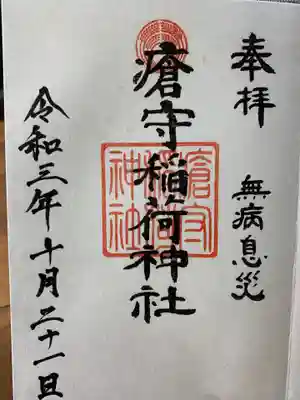 奉拝
無病息災
瘡守稲荷神社
瘡守稲荷神社
令和三年十月二十一日